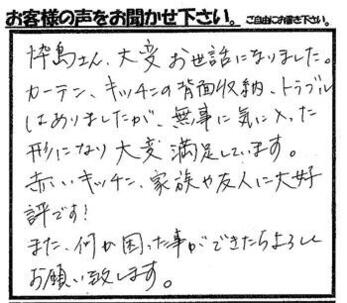 お客様の声をお聞かせ下さい。ご自由にお書き下さい。
枠島さん、大変お世話になりました。
カーテン、キッチンの背面収納、トラブル
はありましたが、無事に気に入った
形になり大変満足しています。
赤いキッチン、家族や友人に大好
評です!
また、何か困った事ができたらよろしく
お願い致します。